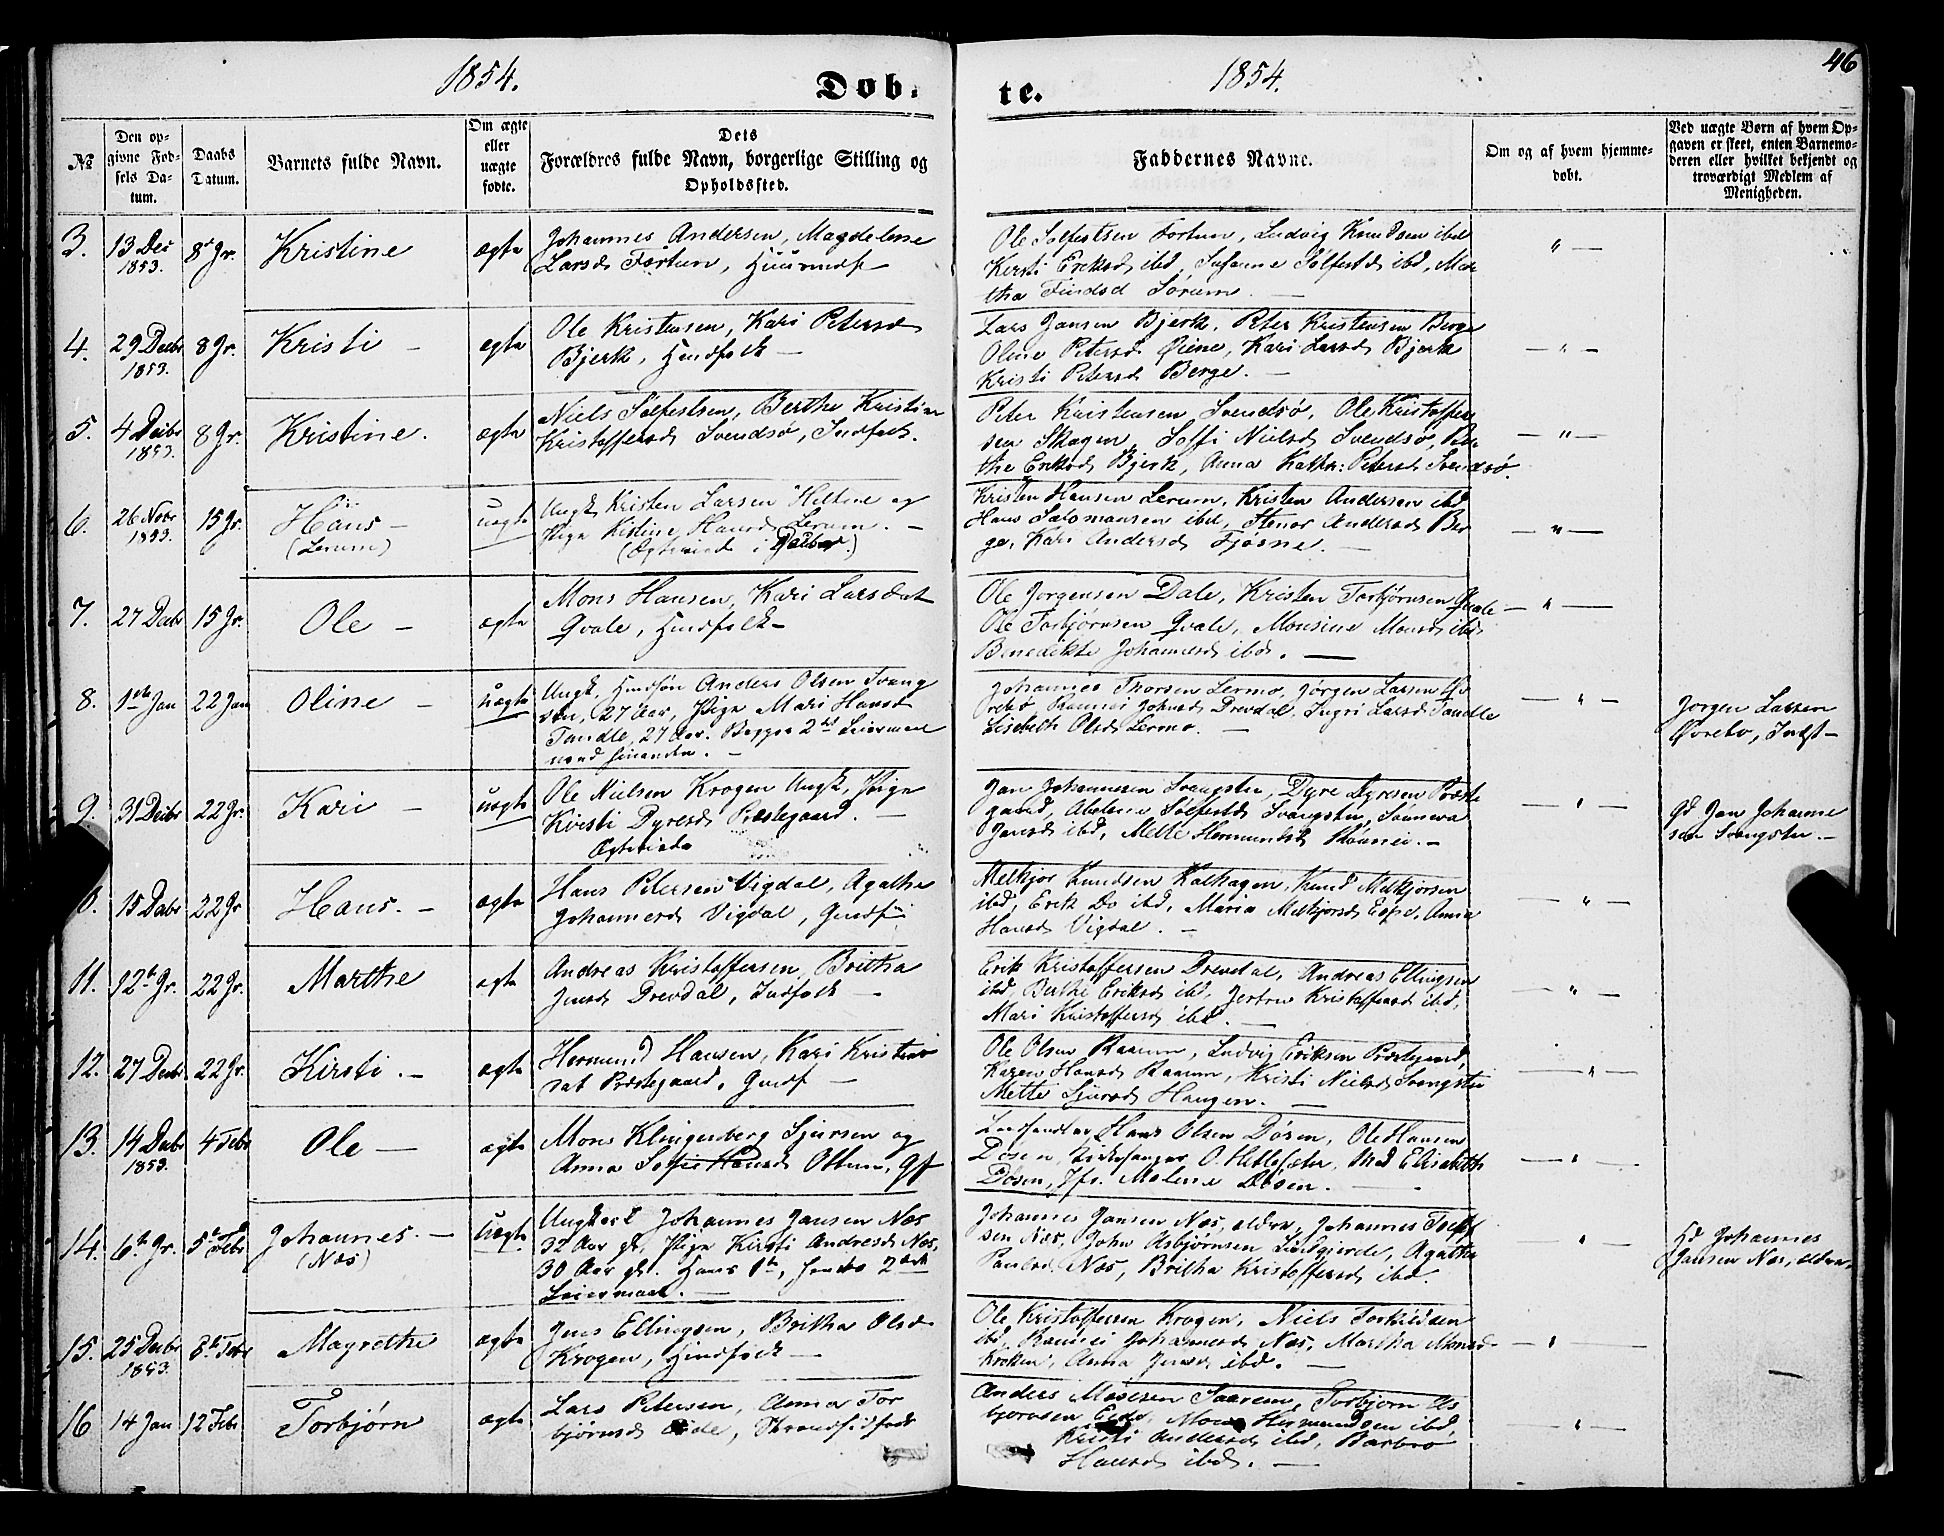 1854. Døb- te. 1854. 46
№
Den opgivne Fødsels Datum.
Daabs Datum.
Barnets fulde Navn.
Om ægte eller uægte fødte.
Dets Forældres fulde Navn, borgerlige Stilling og Opholdssted.
Faddernes Navne.
Om og af hvem hjemmedøbt.
Ved uægte Børn af hvem Opgaven er skeet, enten Barnemoderen eller hvilket bekjendt og troværdigt Medlem af Menigheden.
3. 13 Dec 1853. 8 Jr. Kristine ægte
Johannes Andersen, Magdelene
Larsd Fortun, Huusmdf
Ole Solfestsen Fortun, Ludvig Knudsen ibd
Kirsti Eriksd ibd, Susanne Solfestd ibd, Mar
tha Findsd Sorum. —
4. 29 Decbr 1853. 8 Jr. Kristi — ægte
Ole Kristensen, Kari Petersd
Bjerk, Hmdfolk —
Lars Jansen Bjerk, Peter Kristensen Berge
Oline Petersd Øiene, Kari Larsd Bjerk
Kristi Petersd Berge. —
5. 4 Decbr 1853. 8 Jr. Kristine. ægte
Niels Solfestsen, Berthe Kristine
Kristoffersd Svendsø, Indfolk.
Peter Kristensen Svendsø, Ole Kristoffer
sen Skagen, Soffi Nielsd Svendsø, Ber
the Eriksd Bjerk, Anna Kathr: Petersd Svendsø.
6. 26 Novbr 1853. 15 Jr. Hans — (Lerum) uægte
Ungk Kristen Larsen Heltne og
Pige Kistine Hansd Lerum. —
(Ægteviede i Decbr.)
Kristen Hansen Lerum, Kristen Andersen ibd
Hans Salomonsen ibd, Stenor Andersd Ber
ge, Kari Andersd Fjøsne. —
7. 27 Decbr 15 Jr. Ole — ægte
Mons Hansen, Kari Larsdat
Qvale, Hmdfolk —
Ole Jørgensen Dale, Kristen Torbjørnsen Qvale
Ole Torbjørnsen Qvale, Monsine Monsd ibd
Benedikte Johannesd ibd. —
8. 1ste Jan 22 Jan Oline — uægte
Ungk, Hmdsøn Anders Olsen Svang
sten, 27 Aar, Pige Mari Hansd
Tandle, 27 Aar. Begges 2det Leiermaal
med hinanden. —
Johannes Thorsen Lermo, Jørgen Larsen Øv
rebø, Rannei Johnsd Drevdal, Ingri Larsd Tandle
Lisebeth Olsd Lermo. —
Jørgen Larsen
Øvrebø, Indst —
9. 31 Decbr 22 Jr. Kari — uægte
Ole Nielsen Krogen Ungk, Pige
Kirsti Dyresd Præstegaard. —
Ægteviede
Jan Johannesen Svangsten, Dyre Dyresen Præste
gaard, Abelone Solfestd Svangsten, Sunneva
Jansd ibd, Mette Hermundsd —
Gd Jan Johanne
sen Svangsten —
15 Decbr 22 Jr Hans. — ægte
Hans Petersen Vigdal, Agathe
Johannesd Vigdal, Gmdf
Melkjor Knudsen Kalhagen, Knud Melkjorsen
ibd, Erik Do ibd, Maria Melkjorsd Eape, Anna
Hansd Vigdal. —
11. 12te Jr. 22 Jr. Marthe ægte
Andreas Kristoffersen, Britha
Jensd Drevdal, Indfolk —
Erik Kristoffersen Drevdal, Andreas Ellingsen
ibd, Berthe Eriksd ibd, Jertru Kristoffersd ibd,
Mari Kristoffersd ibd. —
12. 27 Decbr 22 Jr. Kirsti. — ægte
Hermund Hansen, Kari Kristens
dat Præstegaard, Gmdf —
Ole Olsen Raaum, Ludvig Eriksen Præstegaard,
Karen Hansd Raaum, Kristi Nielsd Svangsten
Mette Sjursd Haugen. —
13. 14 Decbr 1853. 4 Febr Ole — ægte
Mons Klingenberg Sjursen og
Anna Sofie Hansd Ottum, Gf
Landhandler Hans Olsen Døsen, Ole Hansen
Døsen, Kirkesanger O. Hetlesæter, Mad Elisabeth
Døsen, Jfr. Malene Døsen. —
14. 6te Jr. 5te Febr Johannes. — (Næs) Uægte
Ungkarl Johannes Jansen Næs
32 Aar gl, Pige Kirsti Andresd Næs,
30 Aar gl. Hans 1te, hendes 2det
Leiermaal. —
Johannes Jansen Næs, ældre, Johannes
sen Næs, John Asbjørnsen Lindgjerde, Agathe
Paulsd Næs, Britha Kristoffersd ibd.
Hd Johannes
Jansen Næs, ældre.
15. 25 Decbr 1853. 8te Febr Magrethe ægte
Jens Ellingsen, Britha Olsd
Krogen, Hmdfolk —
Ole Kristoffersen Krogen, Niels Torkildsen
ibd, Rannei Johannesd Næs, Martha Monsd
Kroken, Anna Jensd ibd. —
16 14 Jan 12 Febr Torbjørn ægte
Lars Petersen, Anna Tor
bjørnsd Eide, Strandsidfolk
Anders Mosesen Saarem, Torbjørn As
bjørnsen Eide, Mons Hermundsen ibd,
Kristi Andersd ibd, Barbro
Hansd ibd. —